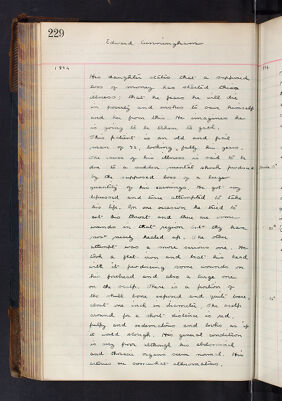 229
Edward Cunningham
1894
His daughter states that a supposed
loss of money has started these
illness, that he fears he will die
in poverty and wishes to save himself
and her from this. He imagines he
is going to be taken to gaol.
This patient is an old and frail
man of 72, looking fully his years.
The cause of his illness is said to be
due to a sudden mental shock produced
by the supposed loss of a large
quantity of his earnings. He got very
depressed and twice attempted to take
his life. On one occasion he tried to
cut his throat and there are some
wounds in that region but they have
now nearly healed up. The other
attempt was a more serious one. He
took a flat iron and beat his head
with it producing some wounds on
his forehead and also a large one
on the scalp. There is a portion of
the skull bone exposed and quite bare
about one inch in diameter. The scalp
around for a short distance is red,
puffy and oedematous and looks as if
it would slough. His general condition
is very poor although his abdominal
and thoracic organs seem normal. His
urine is somewhat albuminous.